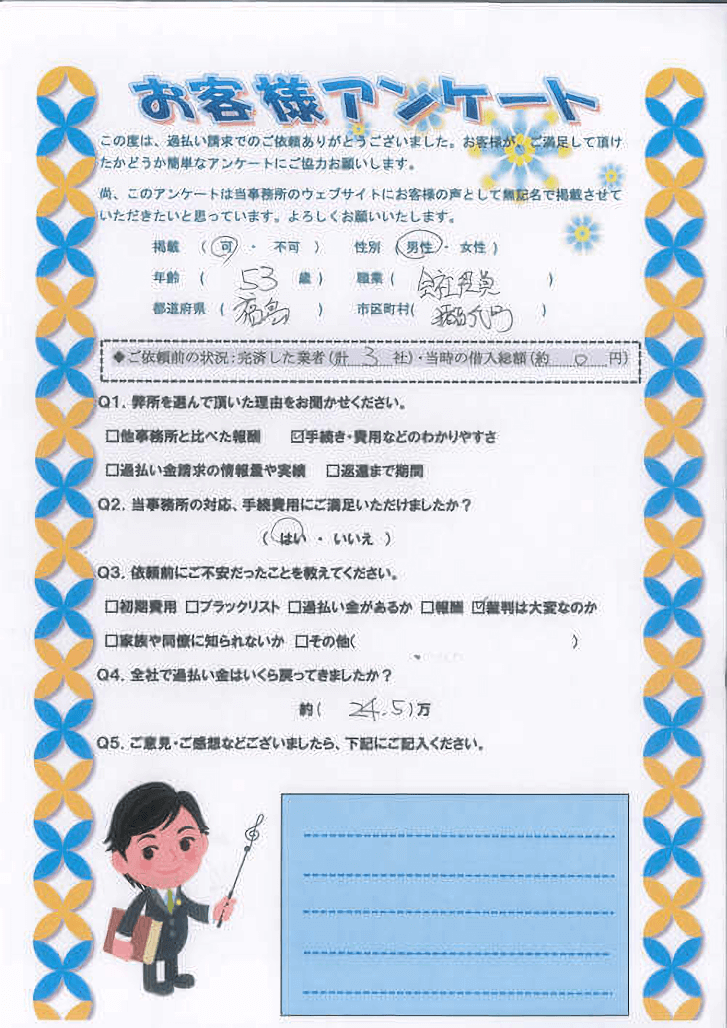 お客様アンケート
この度は、過払い請求でのご依頼ありがとうございました。お客様が、ご満足して頂け
たかどうか簡単なアンケートにご協力お願いします。
尚、このアンケートは当事務所のウェブサイトにお客様の声として無記名で掲載させて
いただきたいと思っています。よろしくお願いいたします。
掲載 ( 可 ・ 不可 ) 性別 ( 男性 ・ 女性 )
年齢 ( 53 歳 ) 職業 ( 会社役員 )
都道府県 ( 福島 ) 市区町村( )
◆ご依頼前の状況:完済した業者(計 3 社)・当時の借入総額(約 0 円)
Q1. 弊所を選んで頂いた理由をお聞かせください。
□他事務所と比べた報酬 ☑手続き・費用などのわかりやすさ
□過払い金請求の情報量や実績 □返還まで期間
Q2. 当事務所の対応、手続費用にご満足いただけましたか?
( はい ・ いいえ )
Q3. 依頼前にご不安だったことを教えてください。
□初期費用 □ブラックリスト □過払い金があるか □報酬 ☑裁判は大変なのか
□家族や同僚に知られないか □その他( )
Q4. 全社で過払い金はいくら戻ってきましたか?
約( 24.5 )万
Q5. ご意見・ご感想などございましたら、下記にご記入ください。